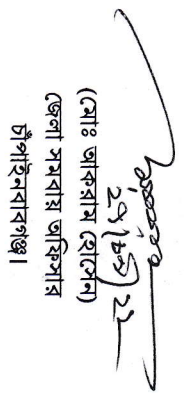 (মোঃ আকরাম হোসেন)
জেলা সমবায় অফিসার
চাঁপাইনবাবগঞ্জ।